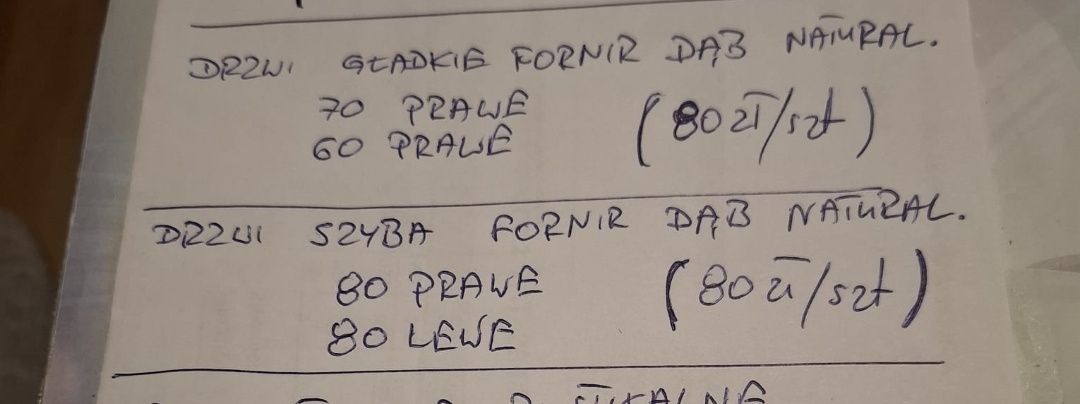 DRZWI GŁADKIE FORNIR DĄB NATURAL.
70 PRAWE (80 zł/szt)
60 PRAWE
DRZWI SZYBA FORNIR DĄB NATURAL.
80 PRAWE (80 zł/szt)
80 LEWE